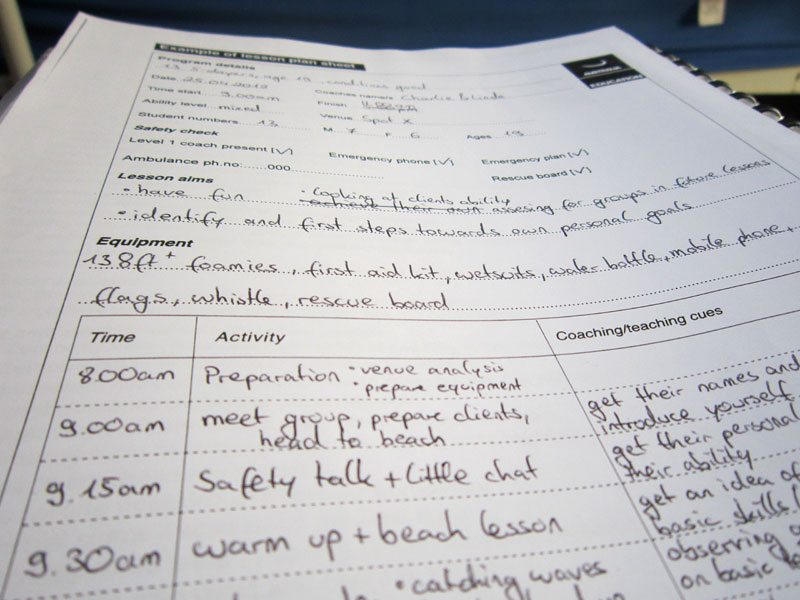 Example of lesson plan sheet
Program details
13 S-players, age 19, conditions good
Date 25.04.2012
Time start 9.00am Coaches names Charlie & Linda
Ability level mixed Finish 11.00am
Student numbers 13 Venue Spot X
Safety check M 7 F 6 Ages 19
Level 1 coach present [✓] Emergency phone [✓] Emergency plan [✓]
Ambulance ph.no: 000 Rescue board [✓]
Lesson aims
• have fun • Looking at clients ability
achieve their own assesing for groups in future lessons
• identify and first steps towards own personal goals
Equipment
13 8ft + foamies, first aid kit, wetsuits, water bottle, mobile phone +
flags, whistle, rescue board
Time Activity Coaching/teaching cues
8.00am Preparation • venue analysis
• prepare equipment
get their names and
9.00am meet group, prepare clients, introduce yourself
head to beach get their personal
their ability
9.15am Safety talk + little chat get an idea of
basic skills
9.30am warm up + beach lesson observing
on basic
• catching waves
EDUCATION